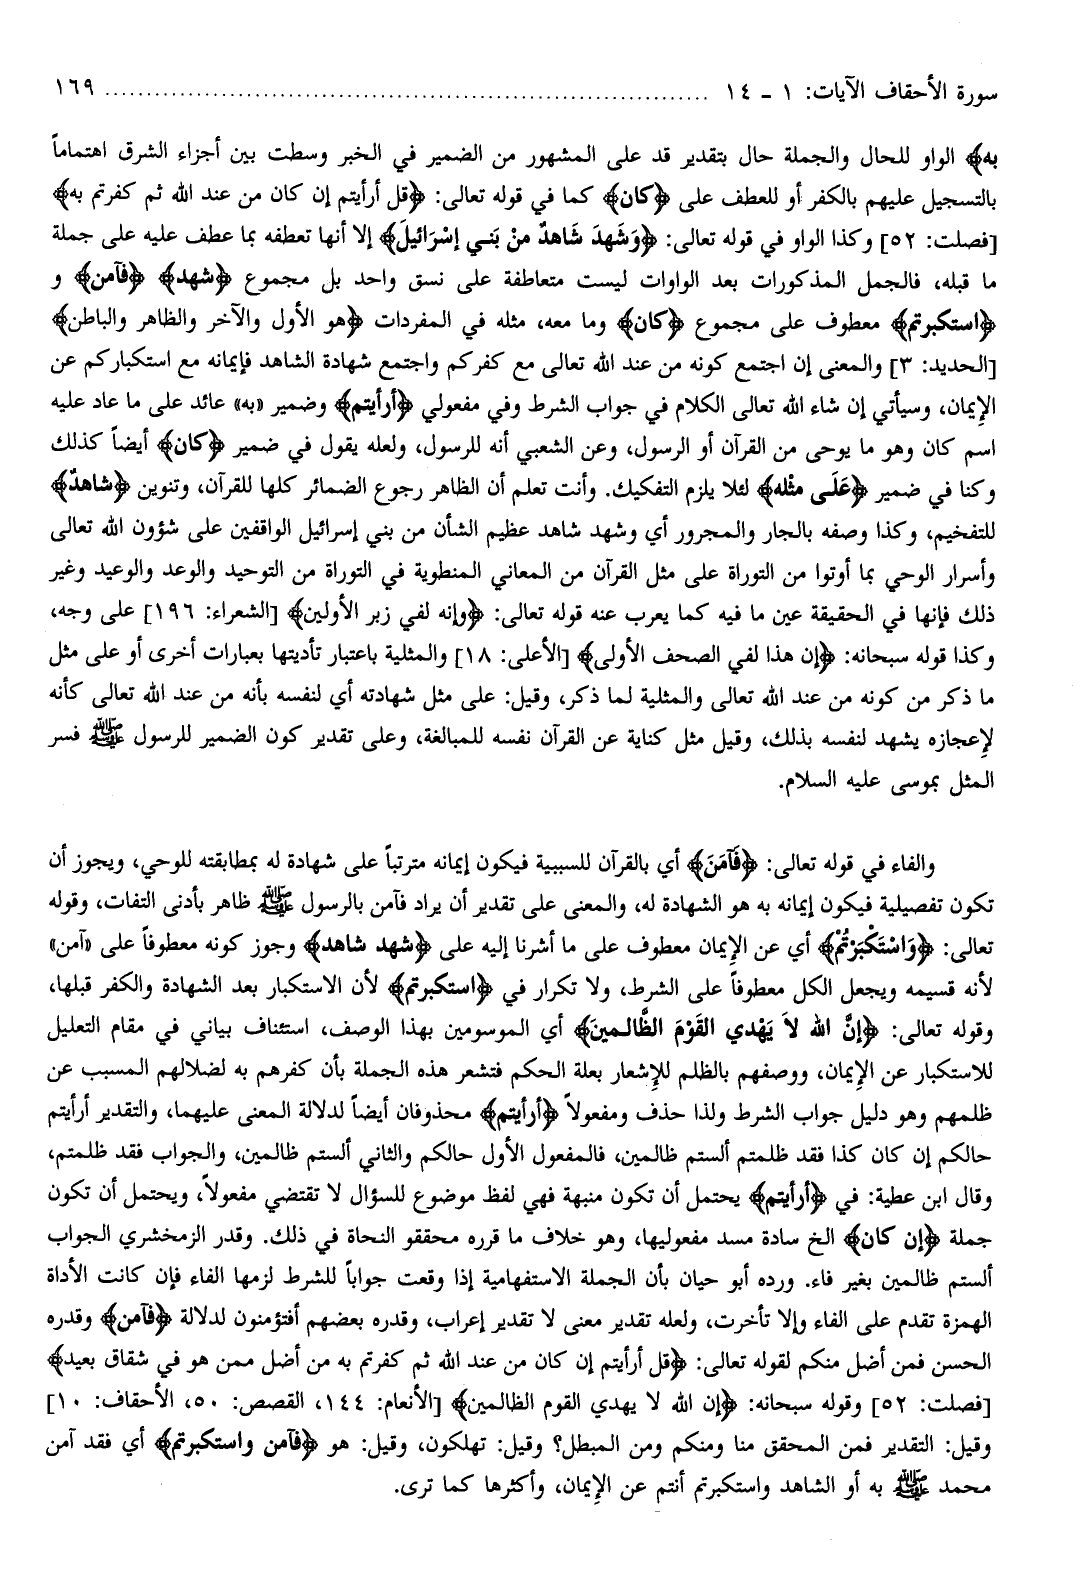 سورة الأحقاف الآيات: ١ - ١٤ ........................................................................ ١٦٩
به﴾ الواو للحال والجملة حال بتقدير قد على المشهور من الضمير في الخبر وسطت بين أجزاء الشرق اهتماماً
بالتسجيل عليهم بالكفر أو للعطف على ﴿كان﴾ كما في قوله تعالى: ﴿قل أرأيتم إن كان من عند الله ثم كفرتم به﴾
[فصلت: ٥٢] وكذا الواو في قوله تعالى: ﴿وَشَهِدَ شَاهِدٌ مِنْ بَنِي إِسْرَائِيلَ﴾ إلا أنها تعطفه بما عطف عليه على جملة
ما قبله، فالجمل المذكورات بعد الواوات ليست متعاطفة على نسق واحد بل مجموع ﴿شهد﴾ ﴿فآمن﴾ و
﴿استكبرتم﴾ معطوف على مجموع ﴿كان﴾ وما معه، مثله في المفردات ﴿هو الأول والآخر والظاهر والباطن﴾
[الحديد: ٣] والمعنى إن اجتمع كونه من عند الله تعالى مع كفركم واجتمع شهادة الشاهد فإيمانه مع استكباركم عن
الإيمان، وسيأتي إن شاء الله تعالى الكلام في جواب الشرط وفي مفعولي ﴿أرأيتم﴾ وضمير «به» عائد على ما عاد عليه
اسم كان وهو ما يوحى من القرآن أو الرسول، وعن الشعبي أنه للرسول، ولعله يقول في ضمير ﴿كان﴾ أيضاً كذلك
وكنا في ضمير ﴿عَلَى مثْله﴾ لئلا يلزم التفكيك. وأنت تعلم أن الظاهر رجوع الضمائر كلها للقرآن، وتنوين ﴿شاهدٌ﴾
للتفخيم، وكذا وصفه بالجار والمجرور أي وشهد شاهد عظيم الشأن من بني إسرائيل الواقفين على شؤون الله تعالى
وأسرار الوحي بما أوتوا من التوراة على مثل القرآن من المعاني المنطوية في التوراة من التوحيد والوعد والوعيد وغير
ذلك فإنها في الحقيقة عين ما فيه كما يعرب عنه قوله تعالى: ﴿وإنه لفي زبر الأولين﴾ [الشعراء: ١٩٦] على وجه،
وكذا قوله سبحانه: ﴿إن هذا لفي الصحف الأولى﴾ [الأعلى: ١٨] والمثلية باعتبار تأديتها بعبارات أخرى أو على مثل
ما ذكر من كونه من عند الله تعالى والمثلية لما ذكر، وقيل: على مثل شهادته أي لنفسه بأنه من عند الله تعالى كأنه
لإعجازه يشهد لنفسه بذلك، وقيل مثل كناية عن القرآن نفسه للمبالغة، وعلى تقدير كون الضمير للرسول ﷺ فسر
المثل بموسى عليه السلام.
والفاء في قوله تعالى: ﴿فَآمَنَ﴾ أي بالقرآن للسببية فيكون إيمانه مترتباً على شهادة له بمطابقته للوحي، ويجوز أن
تكون تفصيلية فيكون إيمانه به هو الشهادة له، والمعنى على تقدير أن يراد فآمن بالرسول ﷺ ظاهر بأدنى التفات، وقوله
تعالى: ﴿وَاسْتَكْبَرْتُمْ﴾ أي عن الإيمان معطوف على ما أشرنا إليه على ﴿شهد شاهد﴾ وجوز كونه معطوفاً على «آمن»
لأنه قسيمه ويجعل الكل معطوفاً على الشرط، ولا تكرار في ﴿استكبرتم﴾ لأن الاستكبار بعد الشهادة والكفر قبلها،
وقوله تعالى: ﴿إِنَّ الله لاَ يَهْدي القَوْمَ الظَّالمينَ﴾ أي الموسومين بهذا الوصف، استئناف بياني في مقام التعليل
للاستكبار عن الإيمان، ووصفهم بالظلم للإشعار بعلة الحكم فتشعر هذه الجملة بأن كفرهم به لضلالهم المسبب عن
ظلمهم وهو دليل جواب الشرط ولذا حذف ومفعولاً ﴿أرأيتم﴾ محذوفان أيضاً لدلالة المعنى عليهما، والتقدير أرأيتم
حالكم إن كان كذا فقد ظلمتم ألستم ظالمين، فالمفعول الأول حالكم والثاني ألستم ظالمين، والجواب فقد ظلمتم،
وقال ابن عطية: في ﴿أرأيتم﴾ يحتمل أن تكون منبهة فهي لفظ موضوع للسؤال لا تقتضي مفعولاً، ويحتمل أن تكون
جملة ﴿إن كان﴾ الخ سادة مسد مفعوليها، وهو خلاف ما قرره محققو النحاة في ذلك. وقدر الزمخشري الجواب
ألستم ظالمين بغير فاء. ورده أبو حيان بأن الجملة الاستفهامية إذا وقعت جواباً للشرط لزمها الفاء فإن كانت الأداة
الهمزة تقدم على الفاء وإلا تأخرت، ولعله تقدير معنى لا تقدير إعراب، وقدره بعضهم أفتؤمنون لدلالة ﴿فآمن﴾ وقدره
الحسن فمن أضل منكم لقوله تعالى: ﴿قل أرأيتم إن كان من عند الله ثم كفرتم به من أضل ممن هو في شقاق بعيد﴾
[فصلت: ٥٢] وقوله سبحانه: ﴿إن الله لا يهدي القوم الظالمين﴾ [الأنعام: ١٤٤، القصص: ٥٠، الأحقاف: ١٠]
وقيل: التقدير فمن المحقق منا ومنكم ومن المبطل؟ وقيل: تهلكون، وقيل: هو ﴿فآمن واستكبرتم﴾ أي فقد آمن
محمد ﷺ به أو الشاهد واستكبرتم أنتم عن الإيمان، وأكثرها كما ترى.